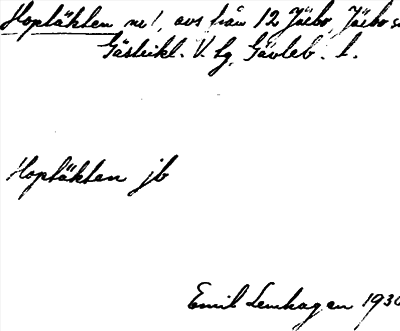 Hoptäkten nr 1, avs från 12 Järbo, Järbo s
Gästrikl. V. tg, Gävleb. l.
Hoptäkten jb
Emil Lenhagen 1930